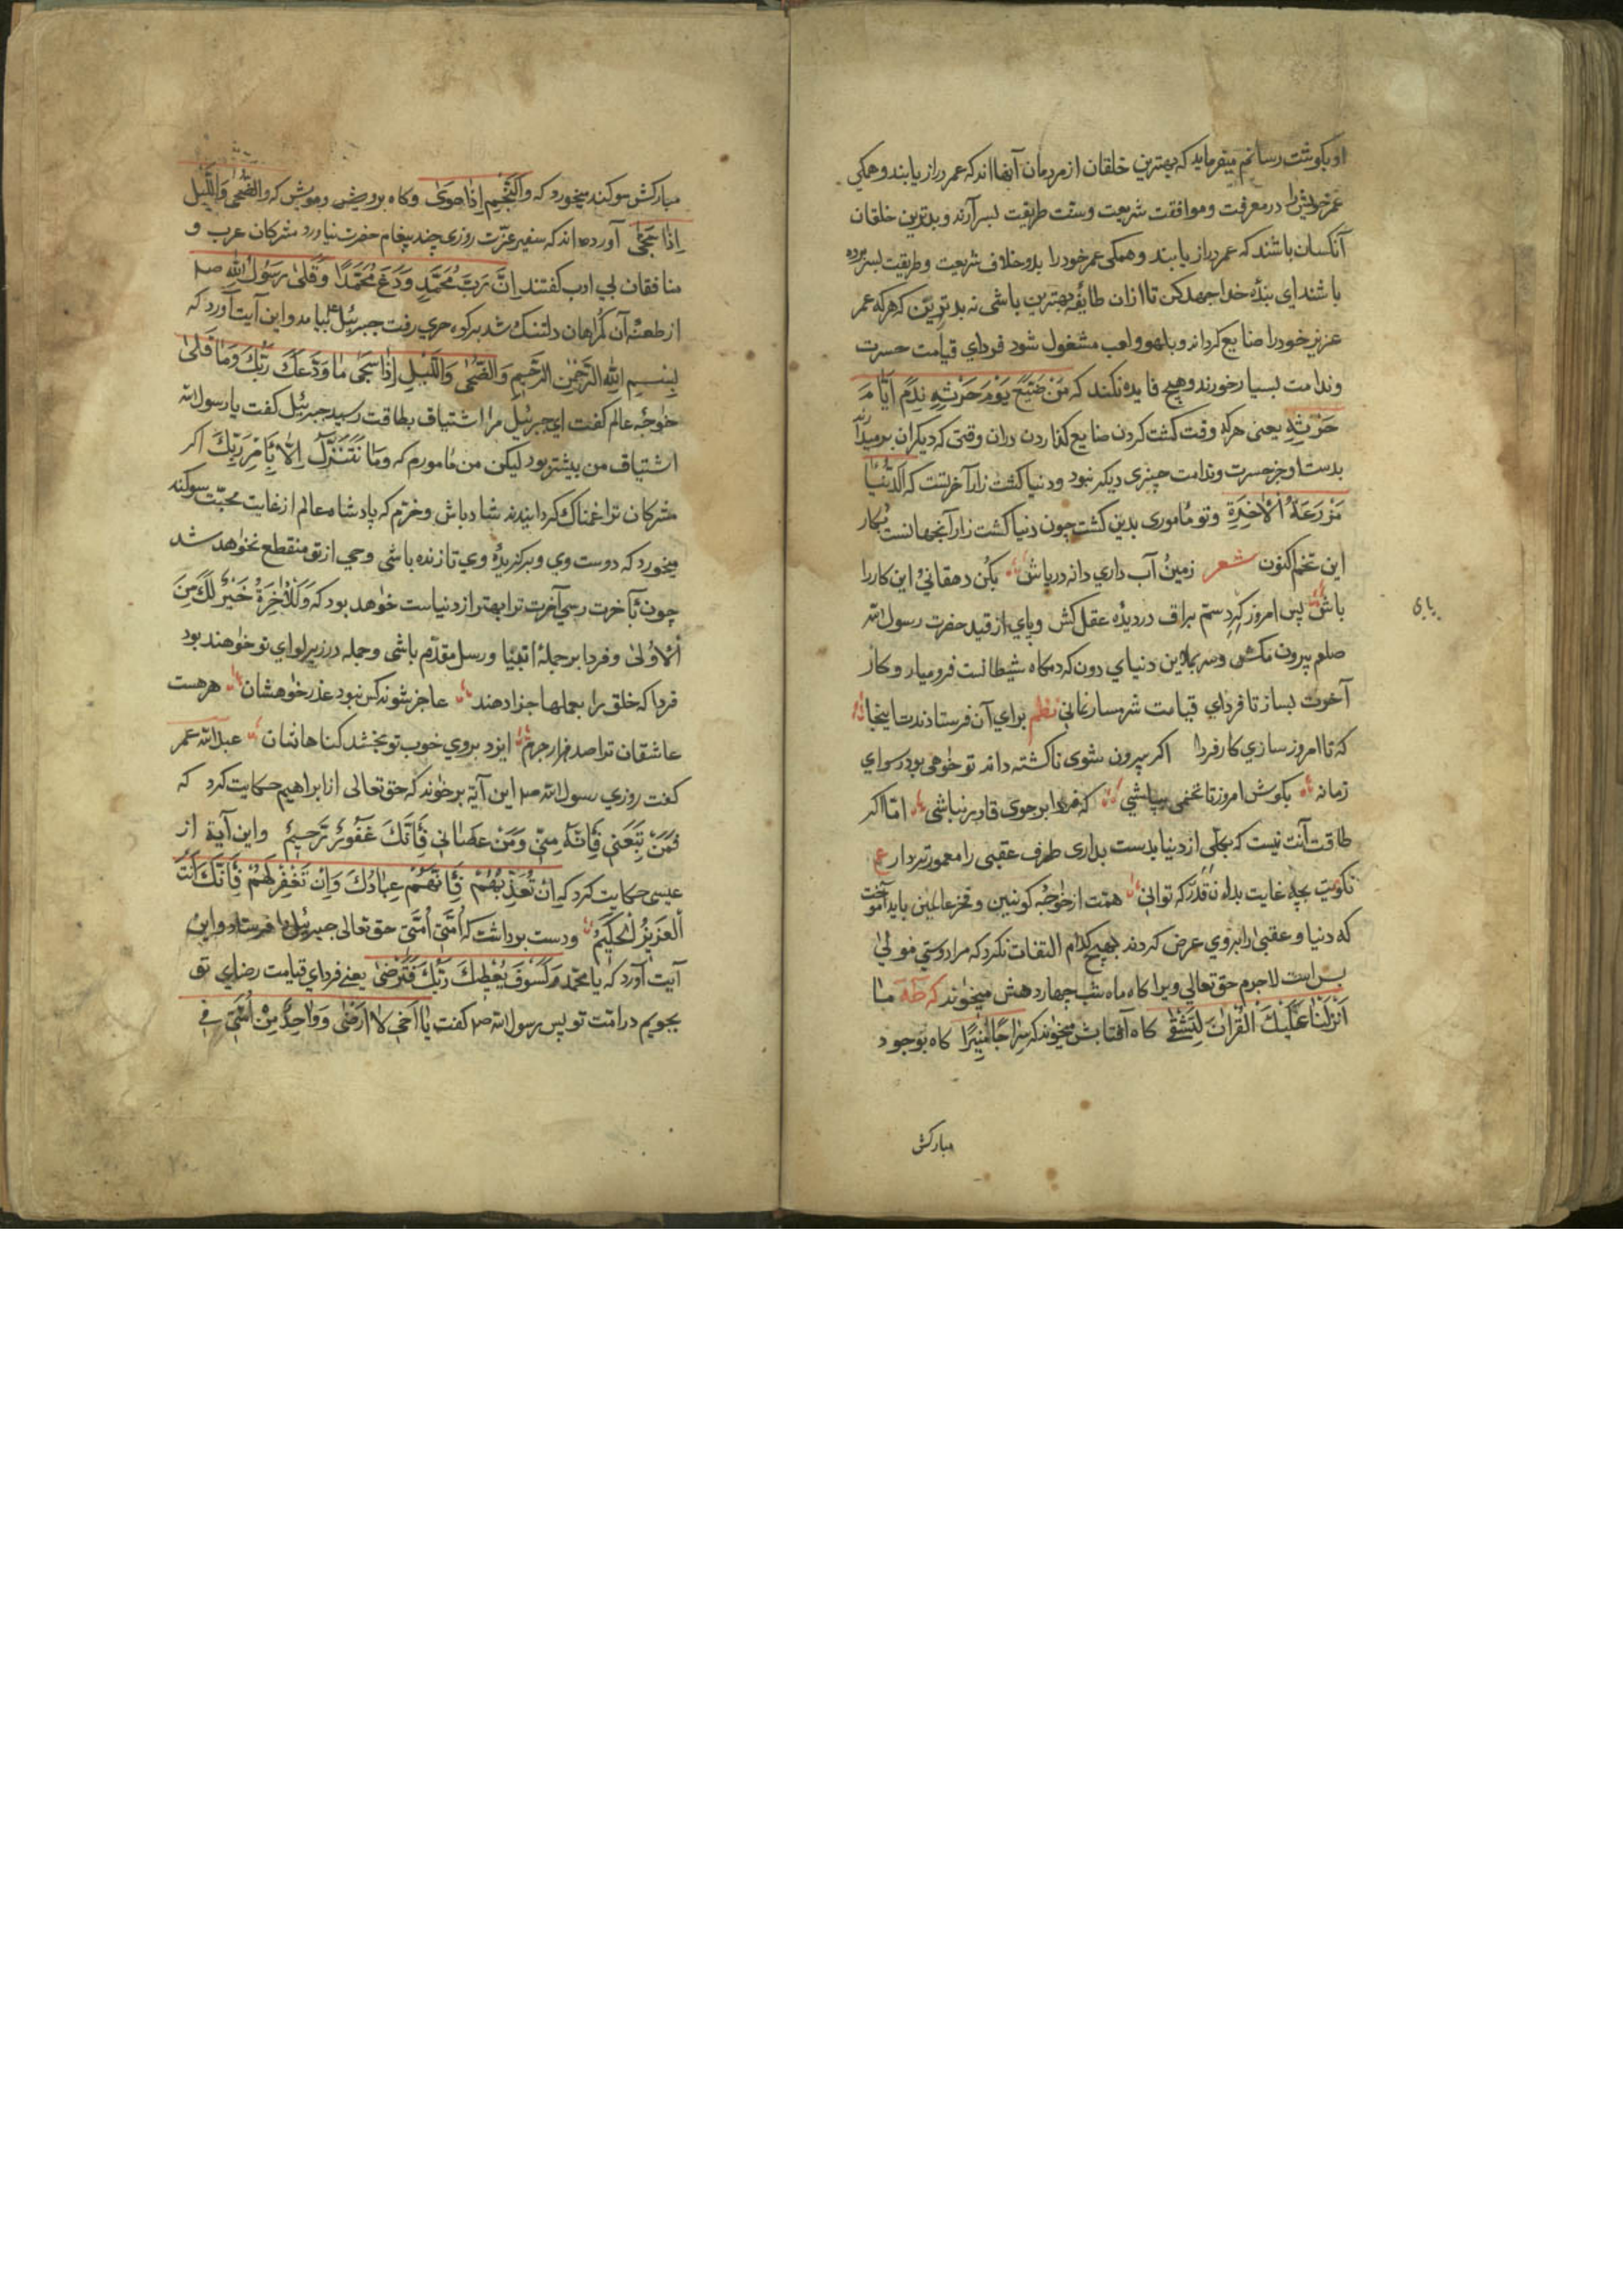 او بگوشت رسانم میفرماید که بهترین خلقان از مردمان آنها اند که عمر دراز یابند و همکی
عمر خویش را در معرفت و موافقت شریعت و سنّت طریقت بسر آرند و بدترین خلقان
آنکسان باشند که عمر دراز یابند و همکی عمر خود را بدو خلاف شریعت و طریقت بسر برده
باشند ای بندهٔ خدا جهد کن تا ازان طایفهٔ بهترین باشی نه بدترین که هر که عمر
عزیز خود را ضایع کرداند و بلهو و لعب مشغول شود فردای قیامت حسرت
و ندامت بسیار خورند و هیچ فایده نکند که مَنْ ضَیَّعَ یَوْمَ حَرْثِهِ نَدِمَ اَیَّامَ
حَرْثِهِ یعنی هر که وقت کشت کردن ضایع کذاردن دران وقتی که دیکران بر میدارند
بدست او جز حسرت و ندامت چیزی دیکر نبود و دنیا کشت زار آخرتست که اَلدُّنْیَا
مَزْرَعَةُ اْلاٰخِرَةِ و تو مأموری بدین کشت چون دنیا کشت زار آنجهانست بکار
این تخم اکنون شعر زمین و آب داری دانه در پاش بکن دهقانی و این کار را
باش پس امروز کرد ستم براق در دیده عقل کش و پای از قید حضرت رسول الله
صلعم بیرون مکش و سر بدین دنیای دون که دمکاه شیطانست فرو میار و کار
آخرت بساز تا فردای قیامت شرمسار نمانی نظم برای آن فرستادندت اینجا
که تا امروز سازی کار فردا اکر بیرون شوی ناکشته دانه تو خواهی بود رسوای
زمانه بکوش امروز تا تخمی بپاشی که فردا بر جوی قادر نباشی امّا اکر
طاقت آنت نیست که بکلّی از دنیا بدست بداری طرف عقبی را معمورتر دار ع
نکویت بچه غایت بداه نقدر که توانی همّت از خواجهٔ کونین و فخر عالمین باید آموخت
که دنیا و عقبیٰ را بر وی عرض کردند بهیچ کدام التفات نکرد که مرا دوستی مولیٰ
بس است لاجرم حق تعالی ویرا کاه ماه شب چهاردهش میخواند که طٰهٰ مَا
اَنْزَلْنَا عَلَیْكَ الْقُرْاٰنَ لِتَشْقٰی کاه آفتابش میخواند که سِرَاجًا مُنِیرًا کاه بوجود
یای
مبارکش
مبارکش سوکند میخورد که وَالنَّجْمِ اِذَا هَوَیٰ و کاه بر رویش و مویش که وَالضُّحٰی وَاللَّیْلِ
اِذَا سَجٰی آورده اند که سفیر عزّت روزی چند پیغام حضرت نیاورد مشرکان عرب و
منافقان بی ادب کفتند اِنَّ رَبَّ مُحَمَّدٍ وَدَعَ مُحَمَّدًا وَقَلٰی رَسُولُ اللّٰه صلم
از طعنهٔ آن کمراهان دلتنک شد بر کوه حری رفت جبرئیل بیامد و این آیت آورد که
بِسْمِ اللّٰهِ الرَّحْمٰنِ الرَّحِیمِ وَالضُّحٰی وَاللَّیْلِ اِذَا سَجٰی مَا وَدَّعَكَ رَبُّكَ وَمَا قَلٰی
خواجهٔ عالم کفت ای جبرئیل مرا اشتیاق بطاقت رسید جبرئیل کفت یا رسول الله
اشتیاق من بیشتر بود لیکن من مأمورم که وَمَا نَتَنَزَّلُ اِلَّا بِاَمْرِ رَبِّكَ اکر
مشرکان ترا غمناک کردانیدند شاد باش و خرّم که پادشاه عالم از غایت محبّت سوکند
میخورد که دوست وی و برکزیدهٔ وی تا زنده باشی وحی از تو منقطع نخواهد شد
چون بآخرت رسی آخرت ترا بهتر از دنیاست خواهد بود که وَلَلْاٰخِرَةُ خَیْرٌ لَكَ مِنَ
اْلاُولٰی و فردا بر جملهٔ انبیا و رسل مقدّم باشی و جمله در زیر لوای تو خواهند بود
فردا که خلق را بعملها جزا دهند عاجز شوند کس نبود عذر خواهشان هر هست
عاشقان ترا صد هزار جرم ایزد بروی خوب تو بخشد کناهانشان عبد الله عمر
کفت روزی رسول الله صلم این آیة بر خواند که حق تعالی از ابراهیم حکایت کرد که
فَمَنْ تَبِعَنِی فَاِنَّهُ مِنِّی وَمَنْ عَصَانِی فَاِنَّكَ غَفُورٌ رَّحِیمٌ و این آیة از
عیسی حکایت کرد که اِنْ تُعَذِّبْهُمْ فَاِنَّهُمْ عِبَادُكَ وَاِنْ تَغْفِرْ لَهُمْ فَاِنَّكَ اَنْتَ
اَلْعَزِیزُ الْحَکِیمُ و دست برداشت که اُمَّتِی اُمَّتِی حق تعالی جبرئیل را فرستاد و این
آیت آورد که یا محمّد وَلَسَوْفَ یُعْطِیكَ رَبُّكَ فَتَرْضٰی یعنی فردای قیامت رضای تو
بجویم در امّت تو پس رسول الله صلم کفت یَا اَخِی لَا اَرْضٰی وَوَاحِدٌ مِنْ اُمَّتِی فِی